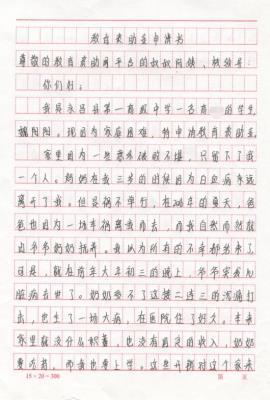 教育资助金申请书
尊敬的教育资助网平台的叔叔阿姨、被领导:
你们好:
我是永昌县第一高级中学一名有 的学生
魏阳阳,现因为家庭困难,特申请教育资助金。
家里因为一些 不堪,只留下了我
一个人。妈妈在我三岁的时候因为白血病永远
离开了我。但是祸不单行,在 年的夏天,爸
爸也因为一场车祸离我而去,而我自然而然就
由爷爷奶奶抚养。我以为所有的不幸都结束了
可是,就在前年大年初三的晚上,爷爷突发心
脏病去世了。奶奶受不了这接二连三的沉痛打
击,也生了一场大病,在医院住了好久。本来
家里就没什么积蓄,也没有固定的收入,奶奶
要吃药,而我也要上学。这些开销对这个家来
15×20=300
第 页